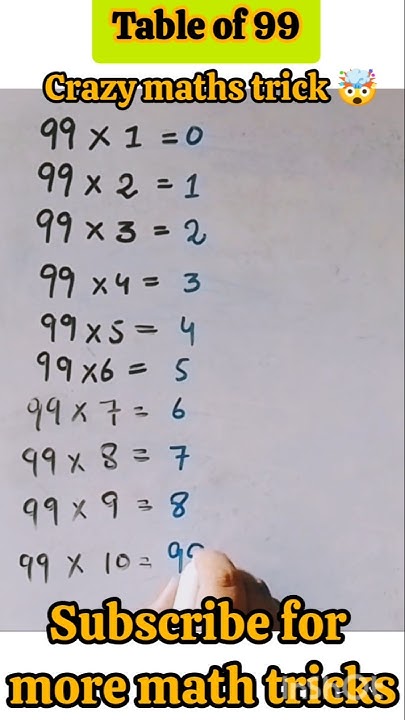 Table of 99
Crazy maths trick 🤯
99 × 1 = 0
99 × 2 = 1
99 × 3 = 2
99 × 4 = 3
99 × 5 = 4
99 × 6 = 5
99 × 7 = 6
99 × 8 = 7
99 × 9 = 8
99 × 10 = 99
Subscribe for
more math tricks